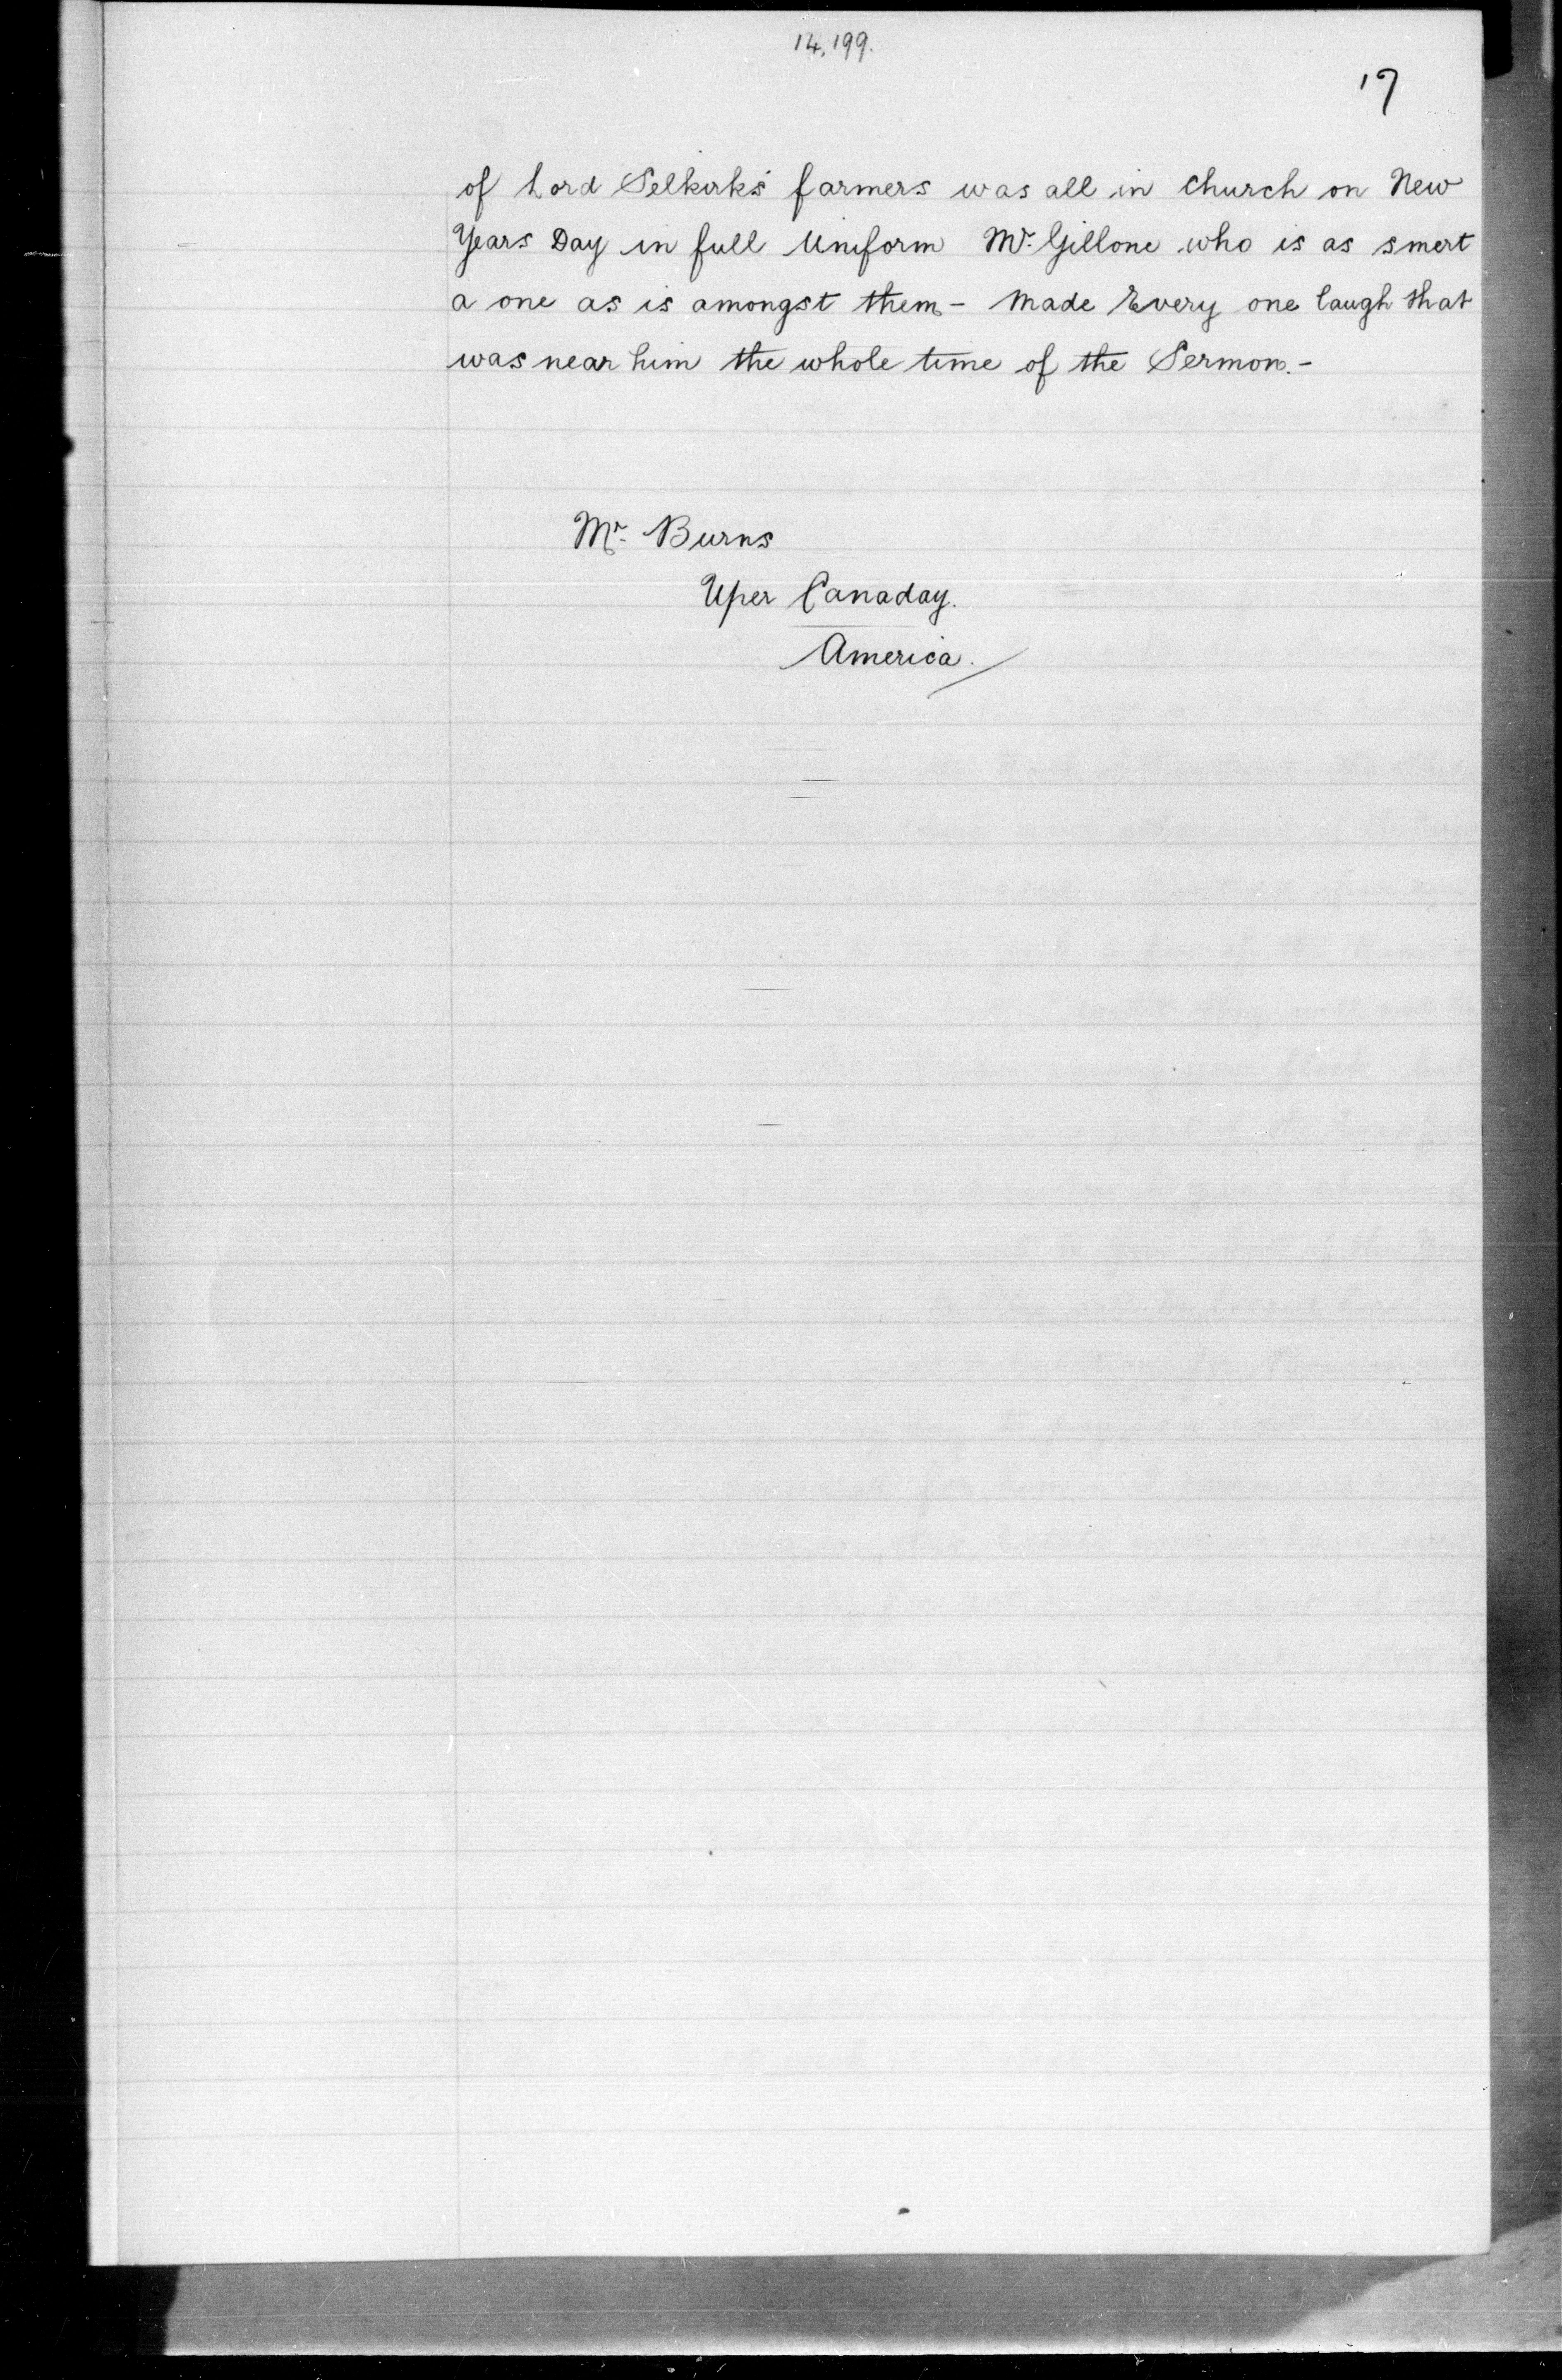 14,199.
17
of Lord Selkirk's farmers was all in church on New
Years Day in full Uniform Mr. Gillone who is as smert
a one as is amongst them - Made Every one laugh that
was near him the whole time of the Sermon. -
Mr. Burns
Uper Canaday.
America.